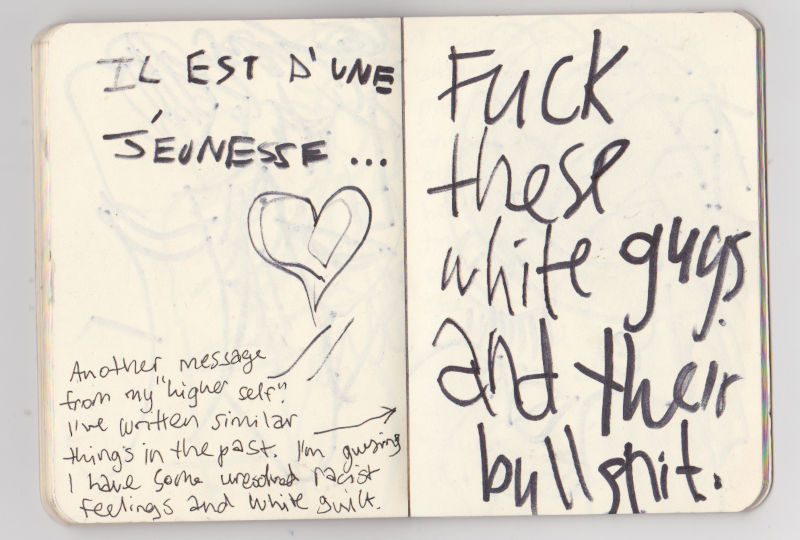 IL EST D'UNE
JEUNESSE...
Another message
from my "higher self".
I've written similar
things in the past. I'm guessing
I have some unresolved racist
feelings and white guilt.
Fuck
these
white guys
and their
bullshit.